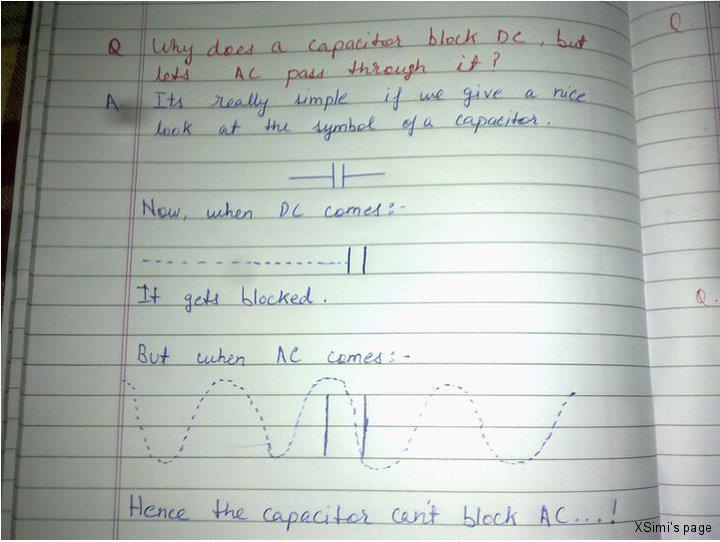 Q Why does a capacitor block DC, but
lets AC pass through it?
A. Its really simple if we give a nice
look at the symbol of a capacitor.
Now, when DC comes:-
It gets blocked.
But when AC comes:-
Hence the capacitor can't block AC....!
Q.
Q.
XSimi's page